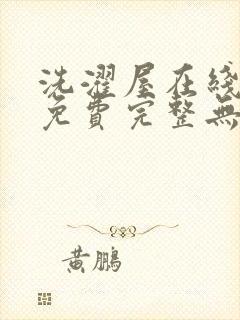 洗濯屋在綫
免費完整無
黃鵬